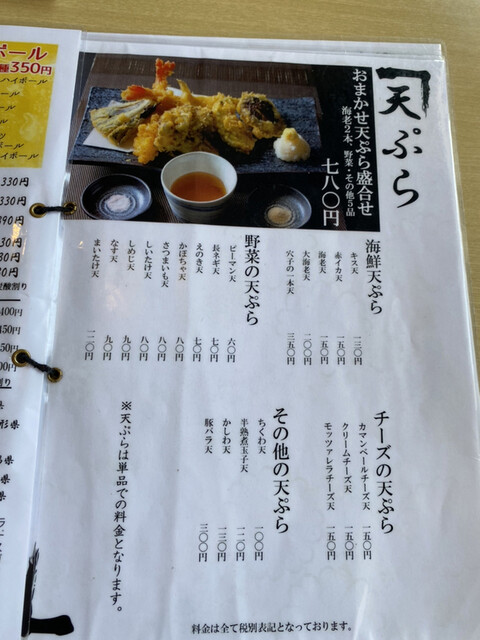 天ぷら
おまかせ天ぷら盛合せ
海老2本、野菜・その他5品
七八〇円
海鮮天ぷら
キス天 一三〇円
赤イカ天 一五〇円
海老天 一五〇円
大海老天 二〇〇円
穴子の一本天 三五〇円
野菜の天ぷら
ピーマン天 六〇円
長ネギ天 七〇円
えのき天 七〇円
かぼちゃ天 八〇円
さつまいも天 八〇円
しいたけ天 八〇円
しめじ天 九〇円
なす天 九〇円
まいたけ天 一二〇円
チーズの天ぷら
カマンベールチーズ天 一五〇円
クリームチーズ天 一五〇円
モッツァレラチーズ天 一五〇円
その他の天ぷら
ちくわ天 一〇〇円
半熟煮玉子天 一二〇円
かしわ天 一三〇円
豚バラ天 三〇〇円
※天ぷらは単品での料金となります。
料金は全て税別表記となっております。
ボール
種350円
ハイボール
330円
330円
390円
炭酸割り
400円
450円